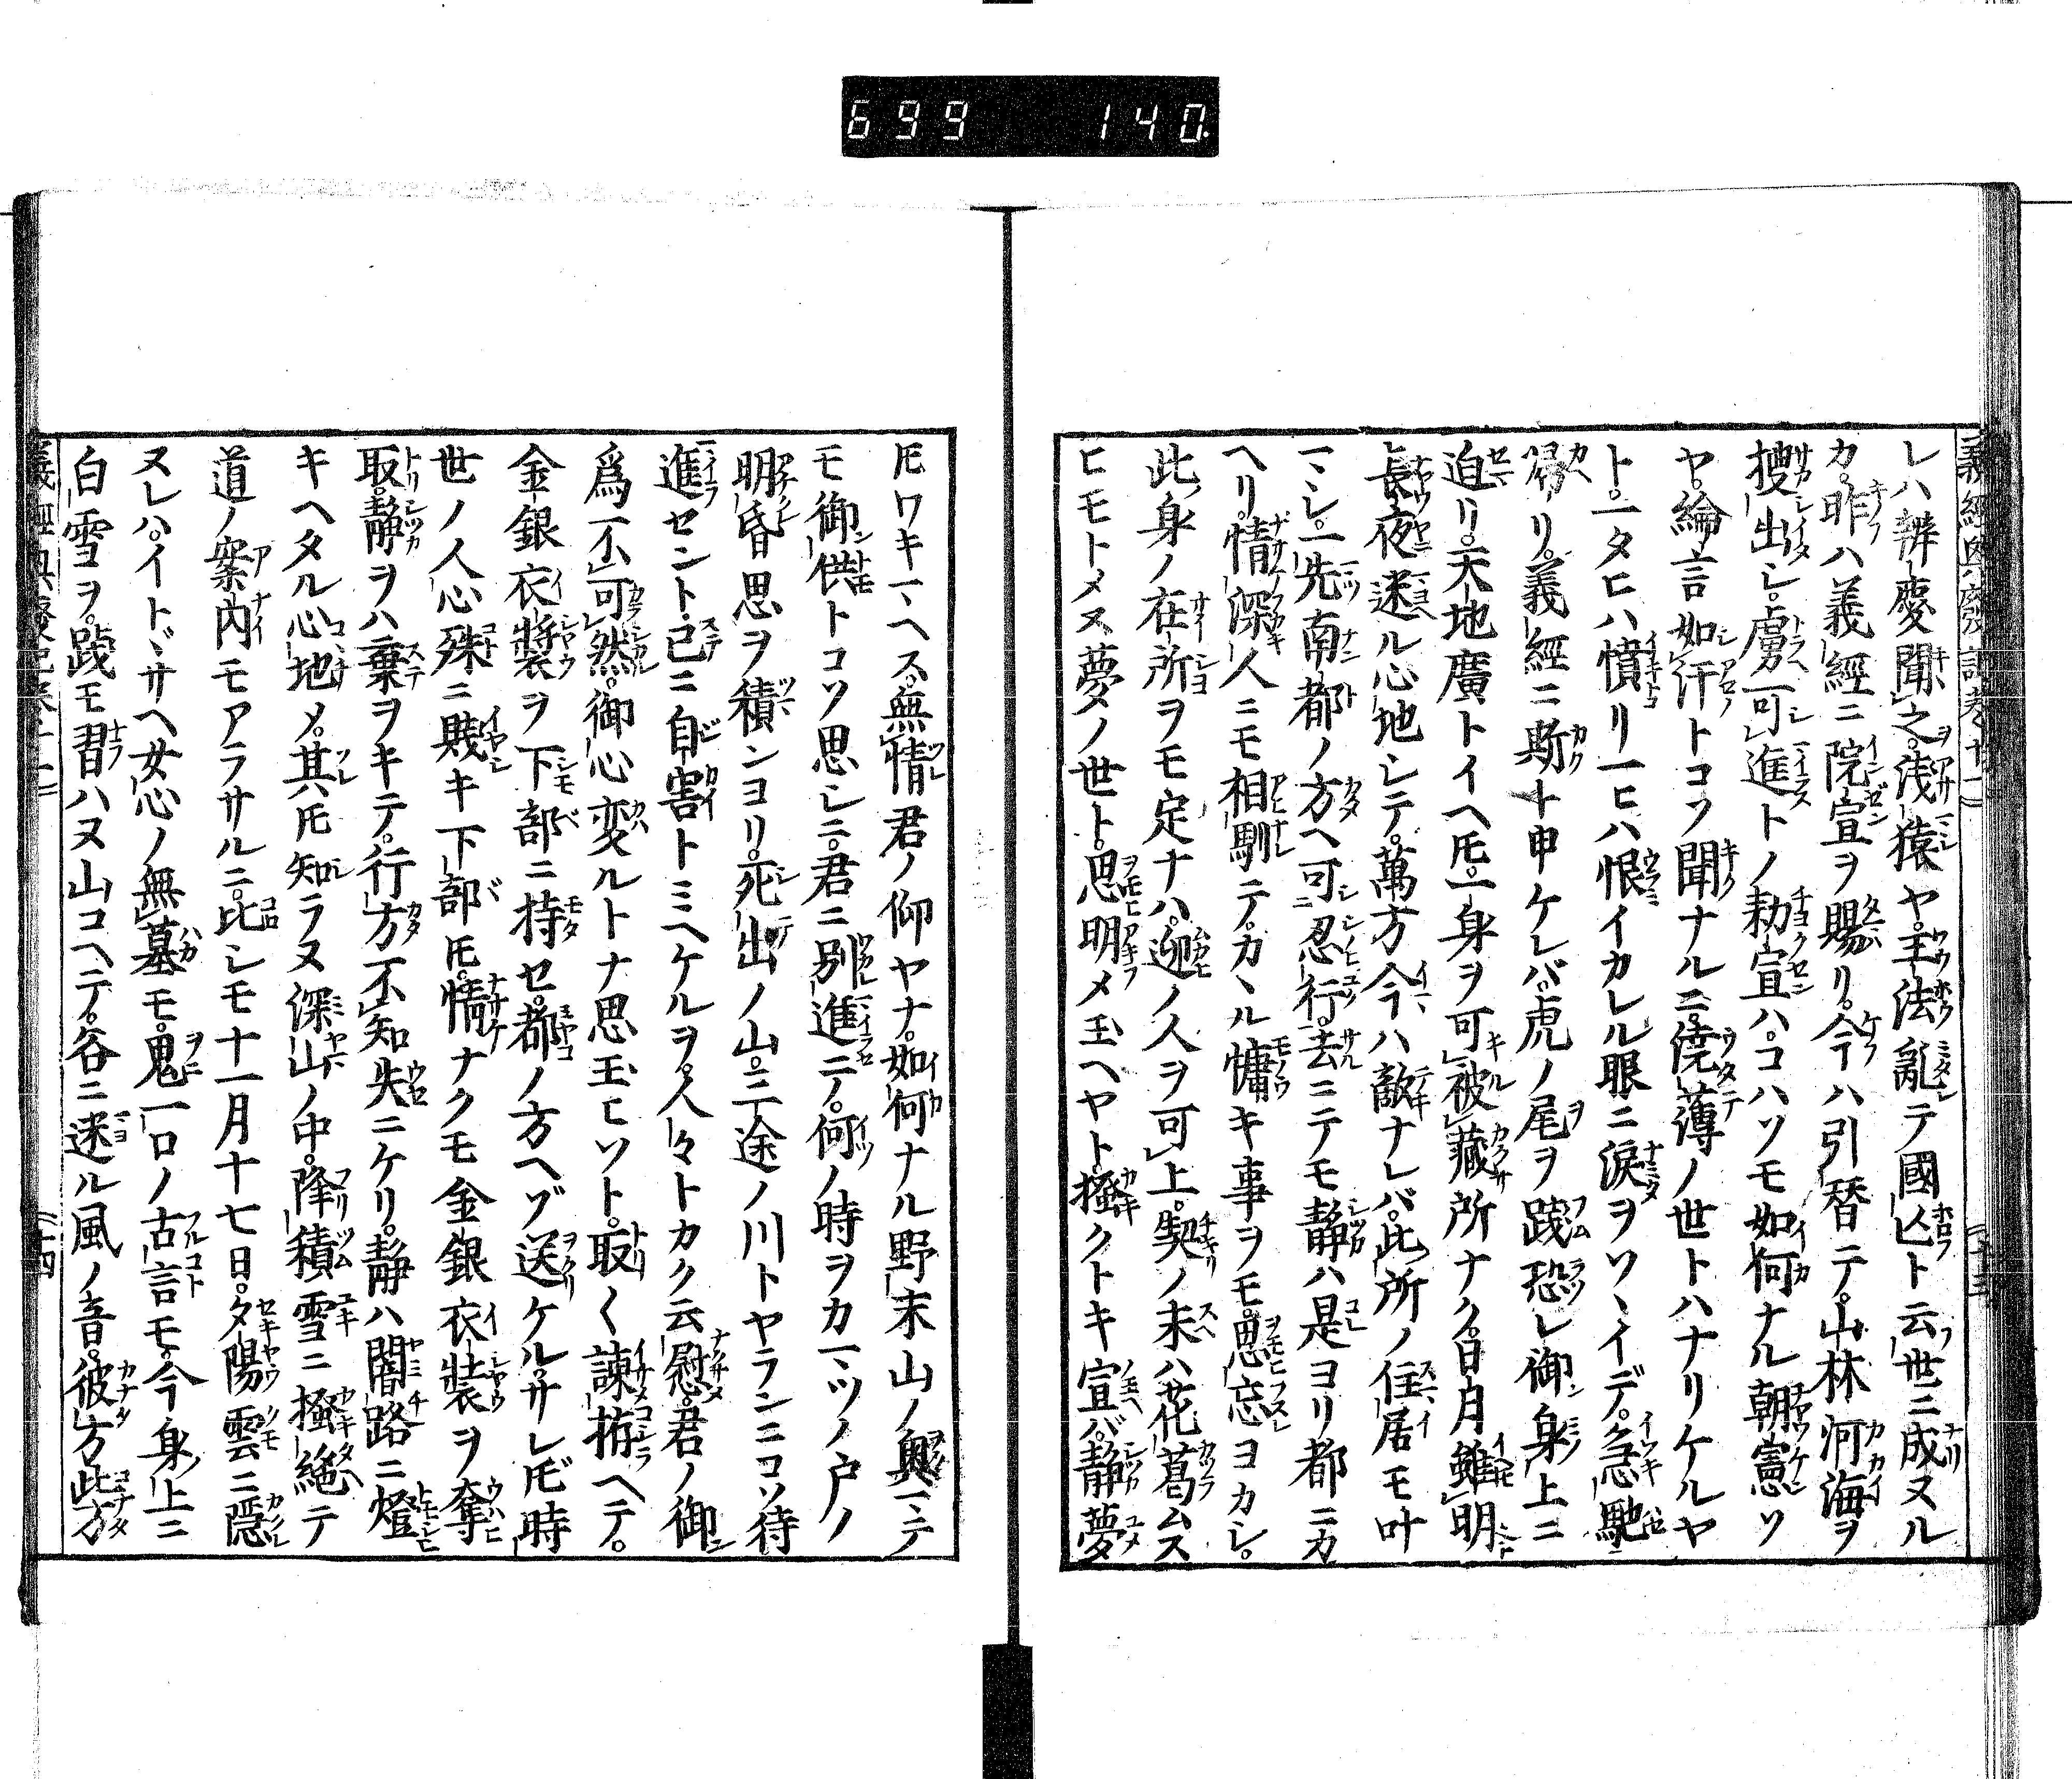 699 140.
義經興廢記卷十一
二十三
レハ辨慶聞之。淺猿ヤ。王法亂テ國亡ト云世ニ成ヌル
カ。昨ハ義經ニ院宣ヲ賜リ。今ハ引替テ。山林河海ヲ
搜出シ。虜可進トノ勅宣ハ。コハソモ如何ナル朝憲ソ
ヤ。綸言如汗トコソ聞ナルニ。澆薄ノ世トハナリケルヤ
ト。一タヒハ憤リ一ヒハ恨イカレル眼ニ淚ヲソヽイデ。急馳
歸リ。義經ニ斯ト申ケレバ。虎ノ尾ヲ踐恐レ御身ノ上ニ
迫リ。天地廣トイヘ𪜈。一身ヲ可被藏所ナク。日月雖明
長夜迷ル心地シテ。萬方今ハ敵ナレバ。此所ノ住居モ叶
マヽシ。一先南都ノ方ヘ可忍行。去ニテモ靜ハ是ヨリ都ニカ
ヘリ。情深人ニモ相馴テ。カヽル慵キ事ヲモ。思忘ヨカシ。
此身ノ在所ヲモ定ナハ。迎ノ人ヲ可上。契ノ末ハ花葛ムス
ヒモトメヌ夢ノ世ト。思明メ玉ヘヤト掻クトキ宣バ。靜夢
𪜈ワキマヘス。無情君ノ仰ヤナ。如何ナル野末山ノ奧マテ
モ御供トコソ思シニ。君ニ別進ニノ。何ノ時ヲカマツノ戸ノ
明昏思ヲ積ンヨリ。死出ノ山。三途ノ川トヤランニコソ待
進セント。已ニ自害トミヘケルヲ。人々トカク云慰。君ノ御
爲不可然。御心変ルトナ思玉ヒソト。取〱諫拵ヘテ。
金銀衣裝ヲ下部ニ持セ。都ノ方ヘゾ送ケル。サレ𪜈時
世ノ人心殊ニ賤キ下部𪜈。情ナクモ金銀衣裝ヲ奪
取。靜ヲハ棄ヲキテ。行方不知失ニケリ。靜ハ闇路ニ燈
キヘタル心地メ。其𪜈知ラヌ深山ノ中。降積雪ニ掻絕テ
道ノ案内モアラサルニ。比シモ十一月十七日。夕陽雲ニ隱
ヌレハ。イトヾサヘ女心ノ無墓モ。鬼一口ノ古言モ。今身ノ上ニ
白雪ヲ。踐モ習ハヌ山コヘテ。谷ニ迷ル風ノ音。彼方此方
義經興廢記卷十一
二十四